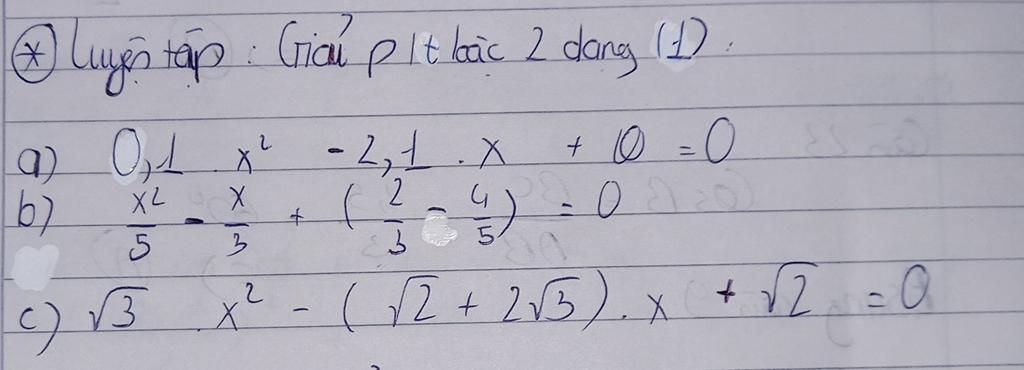 * Luyện tập: Giải pt bậc 2 dạng (1).
a) 0,1 . x² - 2,1 . x + 0 = 0
b) x²/5 - x/3 + (2/3 - 4/5) = 0
c) √3 . x² - (√2 + 2√3) . x + √2 = 0